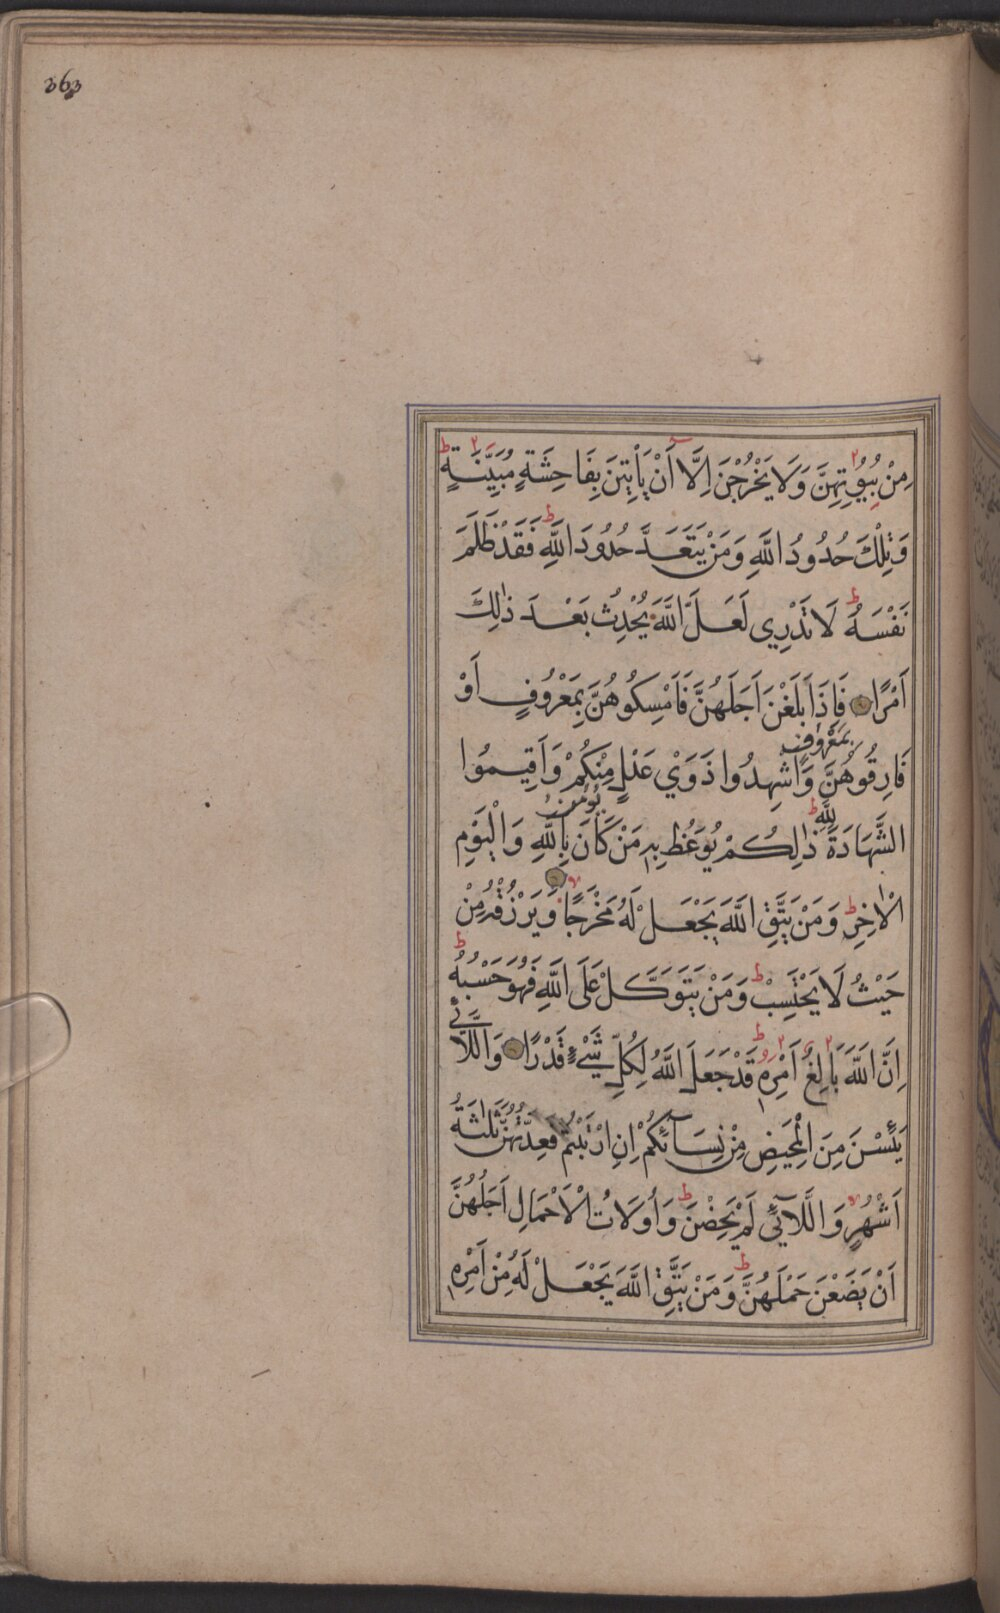 363
مِنْ بُيُوتِهِنَّ وَلَا يَخْرُجْنَ اِلَّا أَنْ يَأْتِينَ بِفَاحِشَةٍ مُبَيِّنَةٍ
وَتِلْكَ حُدُودُ اللَّهِ وَمَنْ يَتَعَدَّ حُدُودَ اللَّهِ فَقَدْ ظَلَمَ
نَفْسَهُ لَا تَدْرِي لَعَلَّ اللَّهَ يُحْدِثُ بَعْدَ ذٰلِكَ
اَمْرًا فَاِذَا بَلَغْنَ اَجَلَهُنَّ فَاَمْسِكُوهُنَّ بِمَعْرُوفٍ اَوْ
بِمَعْرُوفٍ
فَارِقُوهُنَّ وَاَشْهِدُوا ذَوَيْ عَدْلٍ مِنْكُمْ وَاَقِيمُوا
لِلَّهِ يُؤْمِنُ
الشَّهَادَةَ ذٰلِكُمْ يُوعَظُ بِهِ مَنْ كَانَ بِاللَّهِ وَالْيَوْمِ
الْاٰخِرِ وَمَنْ يَتَّقِ اللَّهَ يَجْعَلْ لَهُ مَخْرَجًا وَيَرْزُقْهُ مِنْ
حَيْثُ لَا يَحْتَسِبْ وَمَنْ يَتَوَكَّلْ عَلَى اللَّهِ فَهُوَ حَسْبُهُ
اِنَّ اللَّهَ بَالِغُ اَمْرِهِ قَدْ جَعَلَ اللَّهُ لِكُلِّ شَيْءٍ قَدْرًا وَاللَّائِي
يَئِسْنَ مِنَ الْمَحِيضِ مِنْ نِسَآئِكُمْ اِنِ ارْتَبْتُمْ فَعِدَّتُهُنَّ ثَلٰثَةُ
اَشْهُرٍ وَاللَّآئِي لَمْ يَحِضْنَ وَأُولَاتُ الْاَحْمَالِ اَجَلُهُنَّ
اَنْ يَضَعْنَ حَمْلَهُنَّ وَمَنْ يَتَّقِ اللَّهَ يَجْعَلْ لَهُ مِنْ اَمْرِهِ